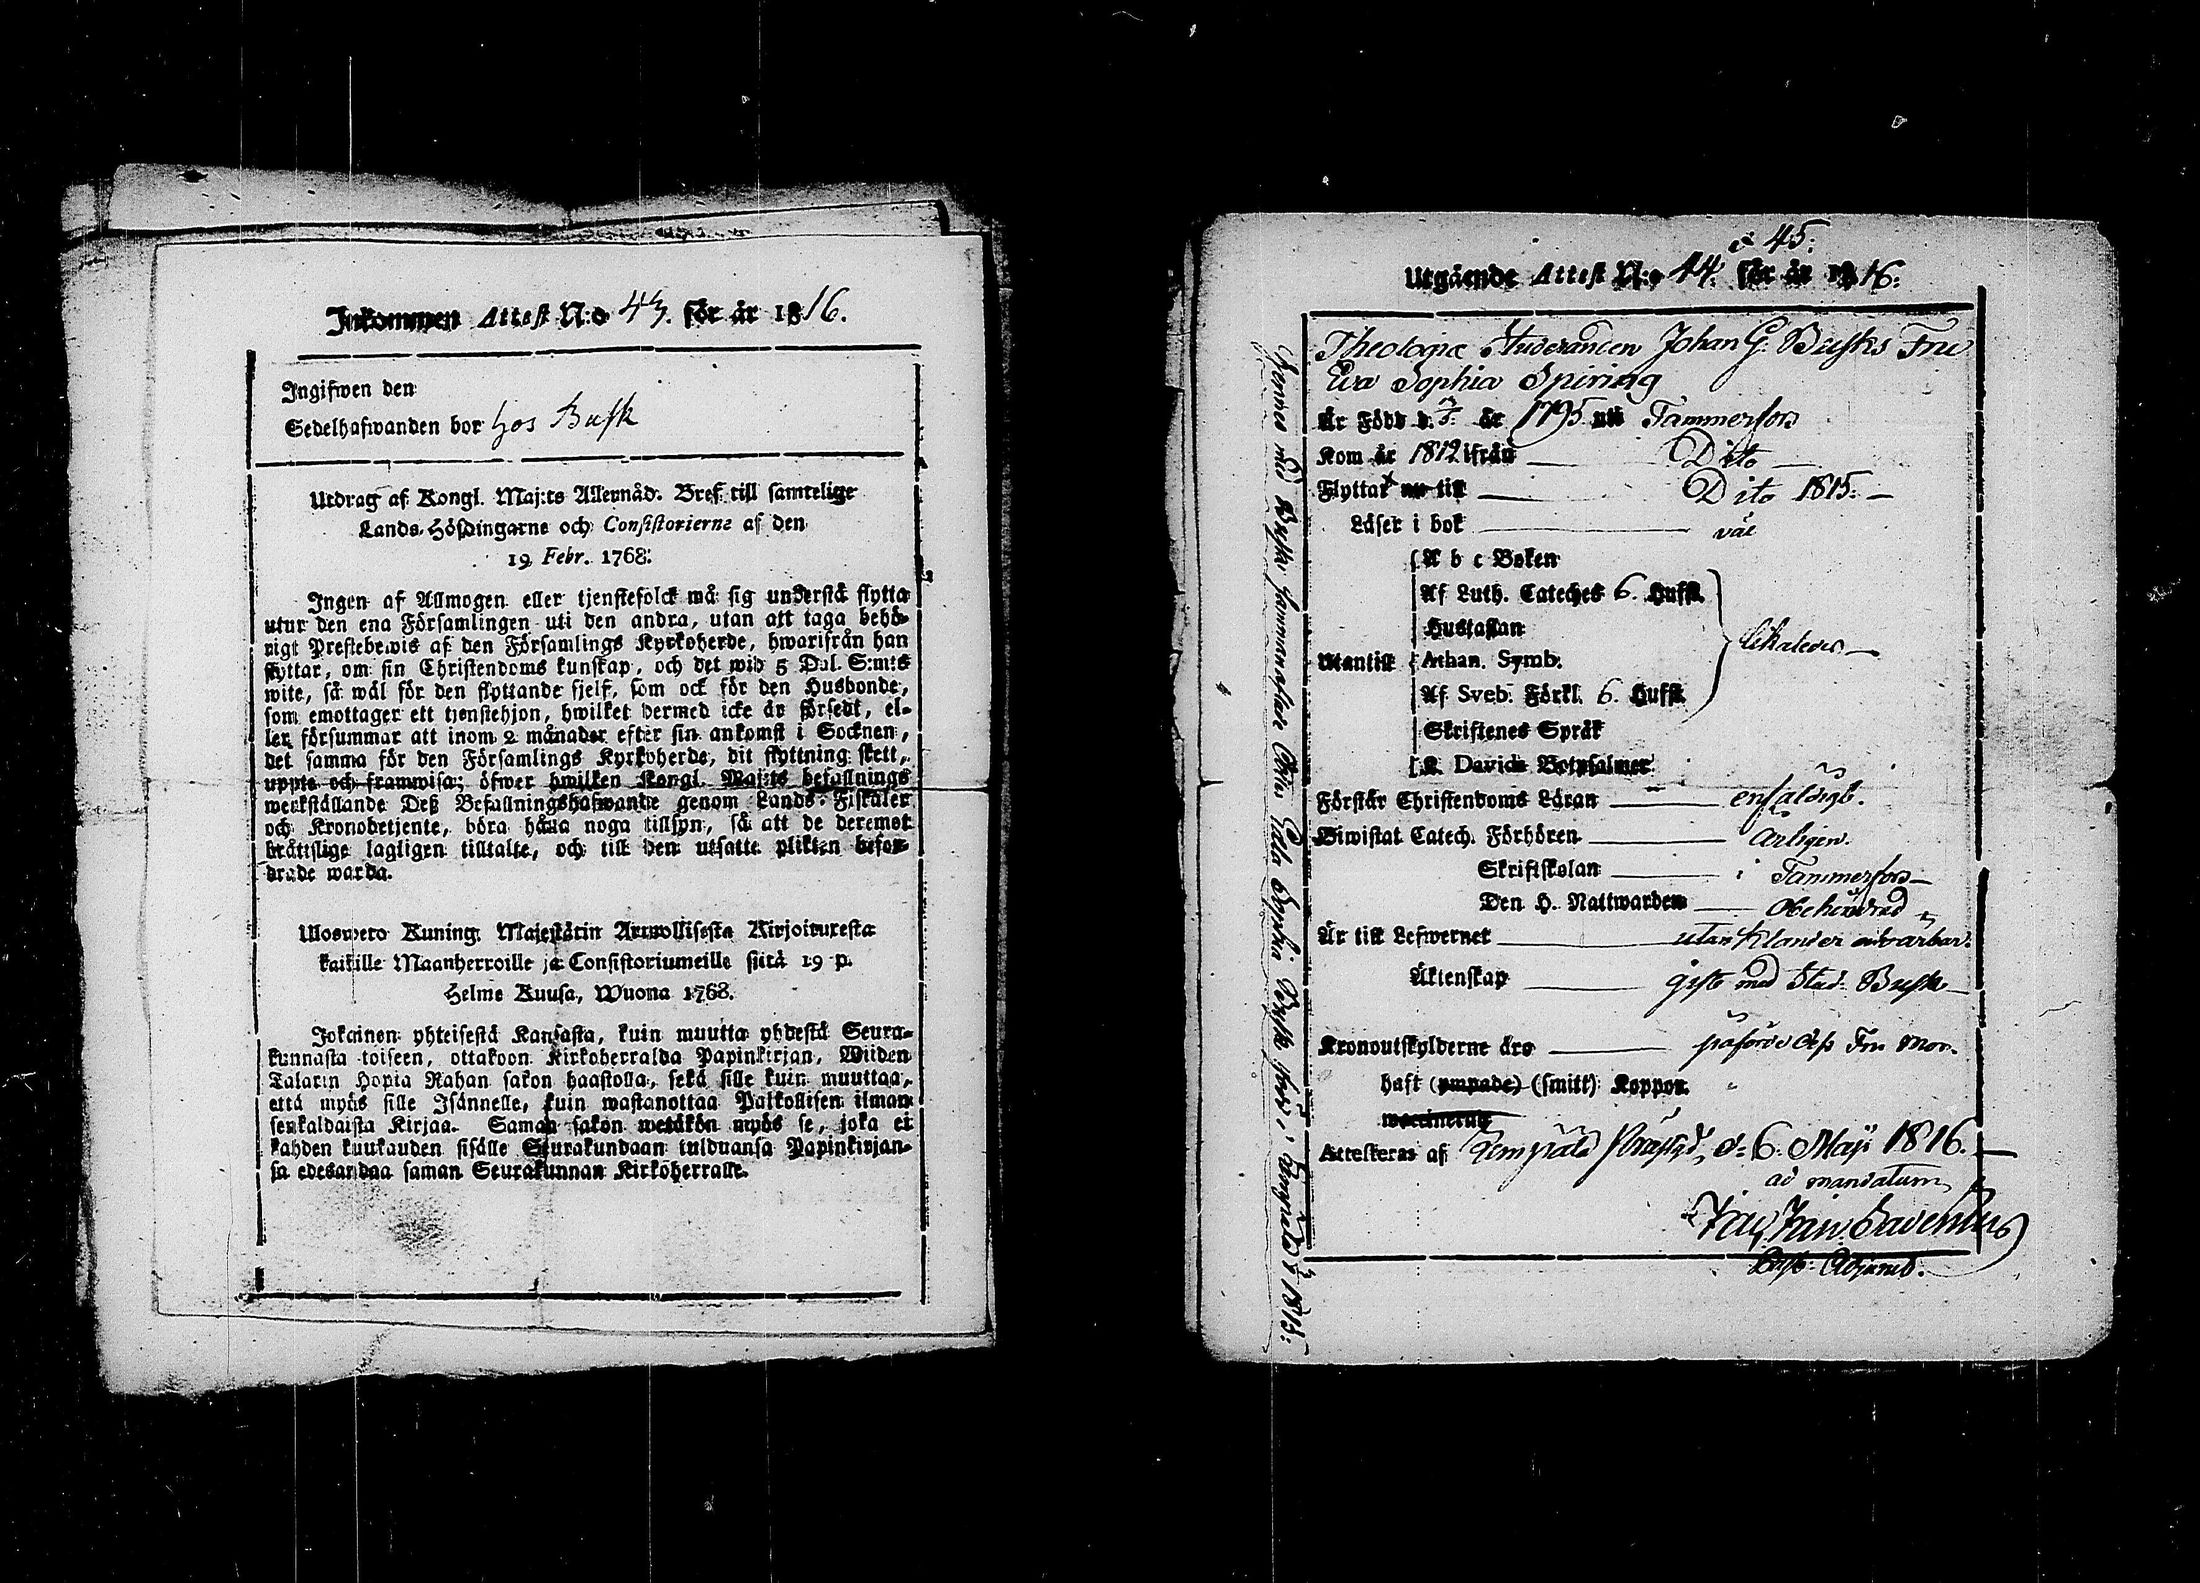 Inkommen Attest N:o 43. för år 1816.
Ingifwen den
Sedelhafwanden bor hos Busk
Utdrag af Kongl. Maj:ts Allernåd. Bref till samtelige
Lands-Höfdingarne och Consistorierne af den
19 Febr. 1768:
Ingen af Allmogen eller tjenstefolck må sig understå flytta
utur den ena Församlingen uti den andra, utan att taga behö-
rigt Prestebewis af den Församlings Kyrkoherde, hwarifrån han
flyttar, om sin Christendoms kunskap, och det wid 5 Dal. S:mts
wite, så wäl för den flyttande sjelf, som ock för den Husbonde,
som emottager ett tjenstehjon, hwilket dermed icke är försedt, el-
ler försummar att inom 2 månader efter sin ankomst i Socknen,
det samma för den Församlings Kyrkoherde, dit flyttning skett,
uppte och framwisa; öfwer hwilken Kongl. Maj:ts befallnings
werkställande Deß Befallningshafwande genom Lands-Fiskaler
och Kronobetjente, böra hålla noga tillsyn, så att de deremot
bråttslige lagligen tilltalte, och till den utsatte plikten befor-
drade warda.
Uloswero Kuning. Majestätin Armollisesta Kirjoituresta
kaikille Maanherroille ja Consistoriumeille siitä 19 p.
Helme Kuusa, Wuona 1768.
Jokainen yhteisestä Kansasta, kuin muutta yhdestä Seura-
kunnasta toiseen, ottakoon Kirkoherralda Papinkirjan, Wiiden
Talarin Hopia Rahan sakon haastolla, sekä sille kuin muuttaa,
että myös sille Isännelle, kuin wastanottaa Palkollisen ilman
senkaldaista Kirjaa. Saman sakon wetäkön myös se, joka ei
kahden kuukauden sisälle Seurakundaan tulduansa Papinkirjan-
sa edesandaa saman Seurakunnan Kirkoherralle.
& 45.
Utgående Attest N:o 44. för år 1816.
Theologiæ Studeranden Johan G. Busks Fru
Eva Sophia Spiring
Är Född d. år 1795 uti Tammerfors
Kom år 1812 ifrån Dito
Flyttat nu till Dito 1815.
Läser i bok väl
Utantill
A b c Boken
Af Luth. Cateches 6. Hufst.
Hustaflan
Athan. Symb.
Af Sveb. Förkl. 6. Hufst.
Skriftenes Språk
K. Davids Botpsalmer
likaledes
Förstår Christendoms Läran enfaldigt.
Biwistat Catech. Förhören årligen.
Skriftskolan i Tammerfors
Den H. Nattwarden obehindrad
Är till Lefwernet utan klander
Äktenskap gift med Stud. Busk
Kronoutskylderne äro påförde Fru Mor.
haft (ympade) (smitt) Koppor.
waccinerug
Attesteras af Lempälä Prästgd, d. 6. Maji 1816.
ad mandatum
Past. Adjunct.